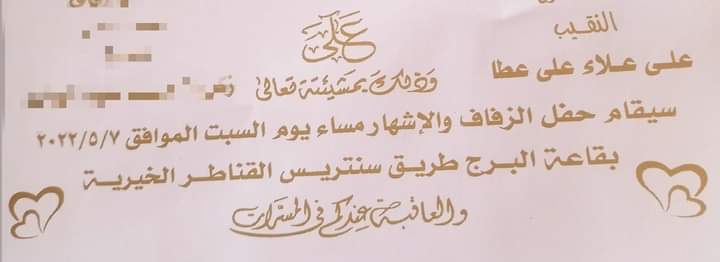 النقيب
على
على علاء على عطا
وذلك بمشيئة تعالى
سيقام حفل الزفاف والإشهار مساء يوم السبت الموافق ٢٠٢٢/٥/٧
بقاعة البرج طريق سنتريس القناطر الخيرية
والعاقبة عندكم في المسرات